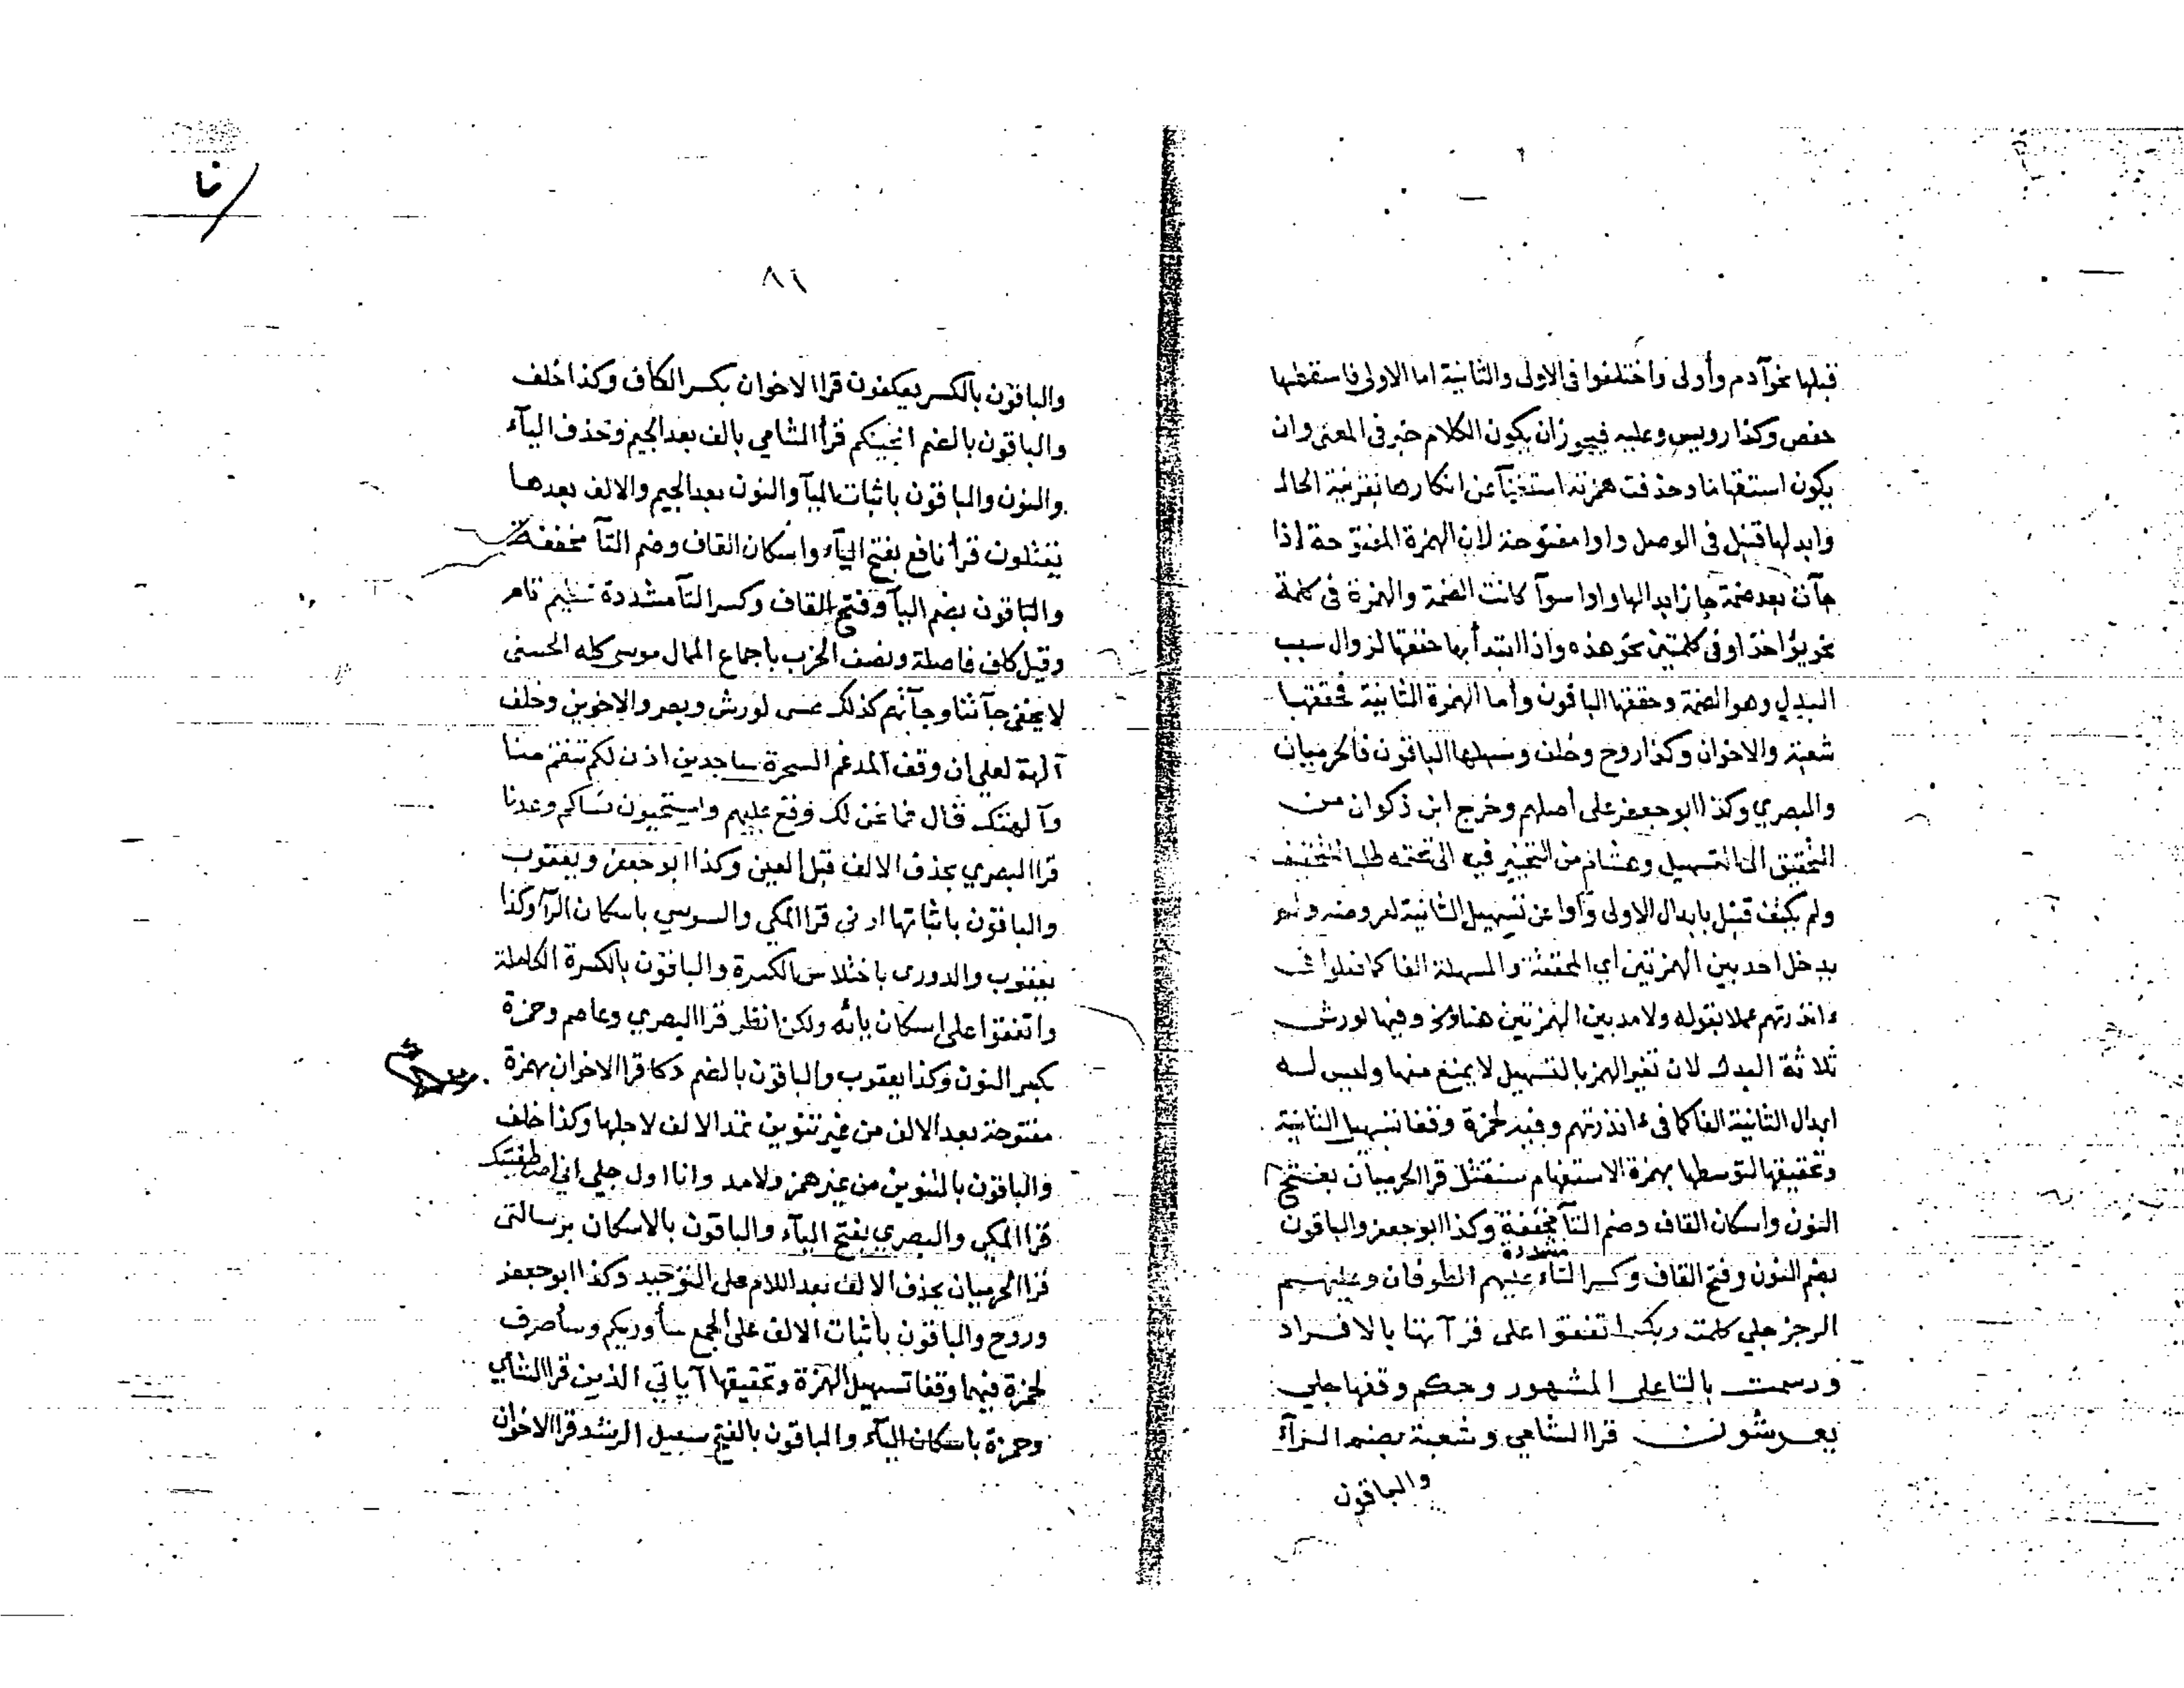 قبلها نحو آدم وأولى واختلفوا فى الاولى والثانية اما الاولى فاسقطها
حفص وكذا رويس وعليه فيجوز ان يكون الكلام خبر فى المعنى وان
يكون استفهاما وحذفت همزته استغنآ عن انكارها بقرينة الحال
وابدلها قنبل فى الوصل واوا مفتوحة لان الهمزة المفتوحة اذا
جآت بعد ضمة جاز ابدالها واوا سوآ كانت الضمة والهمزة فى كلمة
نحو يؤاخذ او فى كلمتين نحو هذه واذا ابتدأ بها حققها لزوال سبب
البدل وهو الضمة وحققها الباقون وأما الهمزة الثانية فحققها
شعبة والاخوان وكذا روح وخلف وسهلها الباقون فالحرميان
والبصري وكذا ابو جعفر على أصلهم وخرج ابن ذكوان من
التحقيق الى التسهيل وهشام من التخيير فيه الى تحتمه طلبا للتخفيف
ولم يكتف قنبل بابدال الاولى وآوا عن تسهيل الثانية لعروضه ولم
يدخل احد بين الهمزتين أي المحققة والمسهلة الفا كما فعلوا فى
ءانذرتهم عملا بقوله ولا مد بين الهمزتين هنا ونحو وفيها لورش
ثلاثة البدل لان تغير الهمز بالتسهيل لا يمنع منها وليس له
ابدال الثانية الفا كما فى ءانذرتهم وفيه لحمزة وقفا تسهيل الثانية
وتحقيقها لتوسطها بهمزة الاستفهام سنقتل قرا الحرميان بفتح
النون واسكان القاف وضم التآ مخففة وكذا ابو جعفر والباقون
بضم النون وفتح القاف وكسر التاء مشددة عليهم الطوفان وعليهم
الرجز جلي كلمت ربك اتفقوا على قرآتها بالافراد
ورسمت بالتا على المشهور وحكم وقفها جلي
يعرشون قرا الشامي وشعبة بضم الرآ
والباقون
٨٦
والباقون بالكسر يعكفون قرا الاخوان بكسر الكاف وكذا خلف
والباقون بالضم انجينكم قرأ الشامي بالف بعد الجيم وحذف اليآء
والنون والباقون باثبات اليآ والنون بعد الجيم والالف بعدها
يقتلون قرأ نافع بفتح اليآء واسكان القاف وضم التآ مخففة
والباقون بضم اليآ وفتح القاف وكسر التآ مشددة عظيم تام
وقيل كاف فاصلة ونصف الحزب باجماع الممال موسى كله الحسنى
لا يخفى جآتنا وجآتهم كذلك عسى لورش وبصر والاخوين وخلف
آلهة لعلى ان وقف المدغم السحرة ساجدين اذن لكم تنقم منا
وآلهتك قال فما نحن لك وقع عليهم ويستحيون نساكم وعدنا
قرا البصري بحذف الالف قبل العين وكذا ابو جعفر ويعقوب
والباقون باثباتها ارنى قرا المكي والسوسي باسكان الرآ وكذا
يعقوب والدورى باختلاس الكسرة والباقون بالكسرة الكاملة
واتفقوا على اسكان يائه ولكن انظر قرا البصري وعاصم وحمزة
بكسر النون وكذا يعقوب والباقون بالضم دكا قرا الاخوان بهمزة
مفتوحة بعد الالف من غير تنوين تمد الالف لاجلها وكذا خلف
والباقون بالتنوين من غير همز ولا مد وانا اول جلي اني اصطفيتك
قرا المكي والبصري بفتح اليآء والباقون بالاسكان برسالتى
قرا الحرميان بحذف الالف بعد اللام على التوحيد وكذا ابو جعفر
وروح والباقون باثبات الالف على الجمع سأوريكم وسأصرف
لحمزة فيهما وقفا تسهيل الهمزة وتحقيقها آياتي الذين قرا الشامي
وحمزة باسكان اليآء والباقون بالفتح سبيل الرشد قرا الاخوان